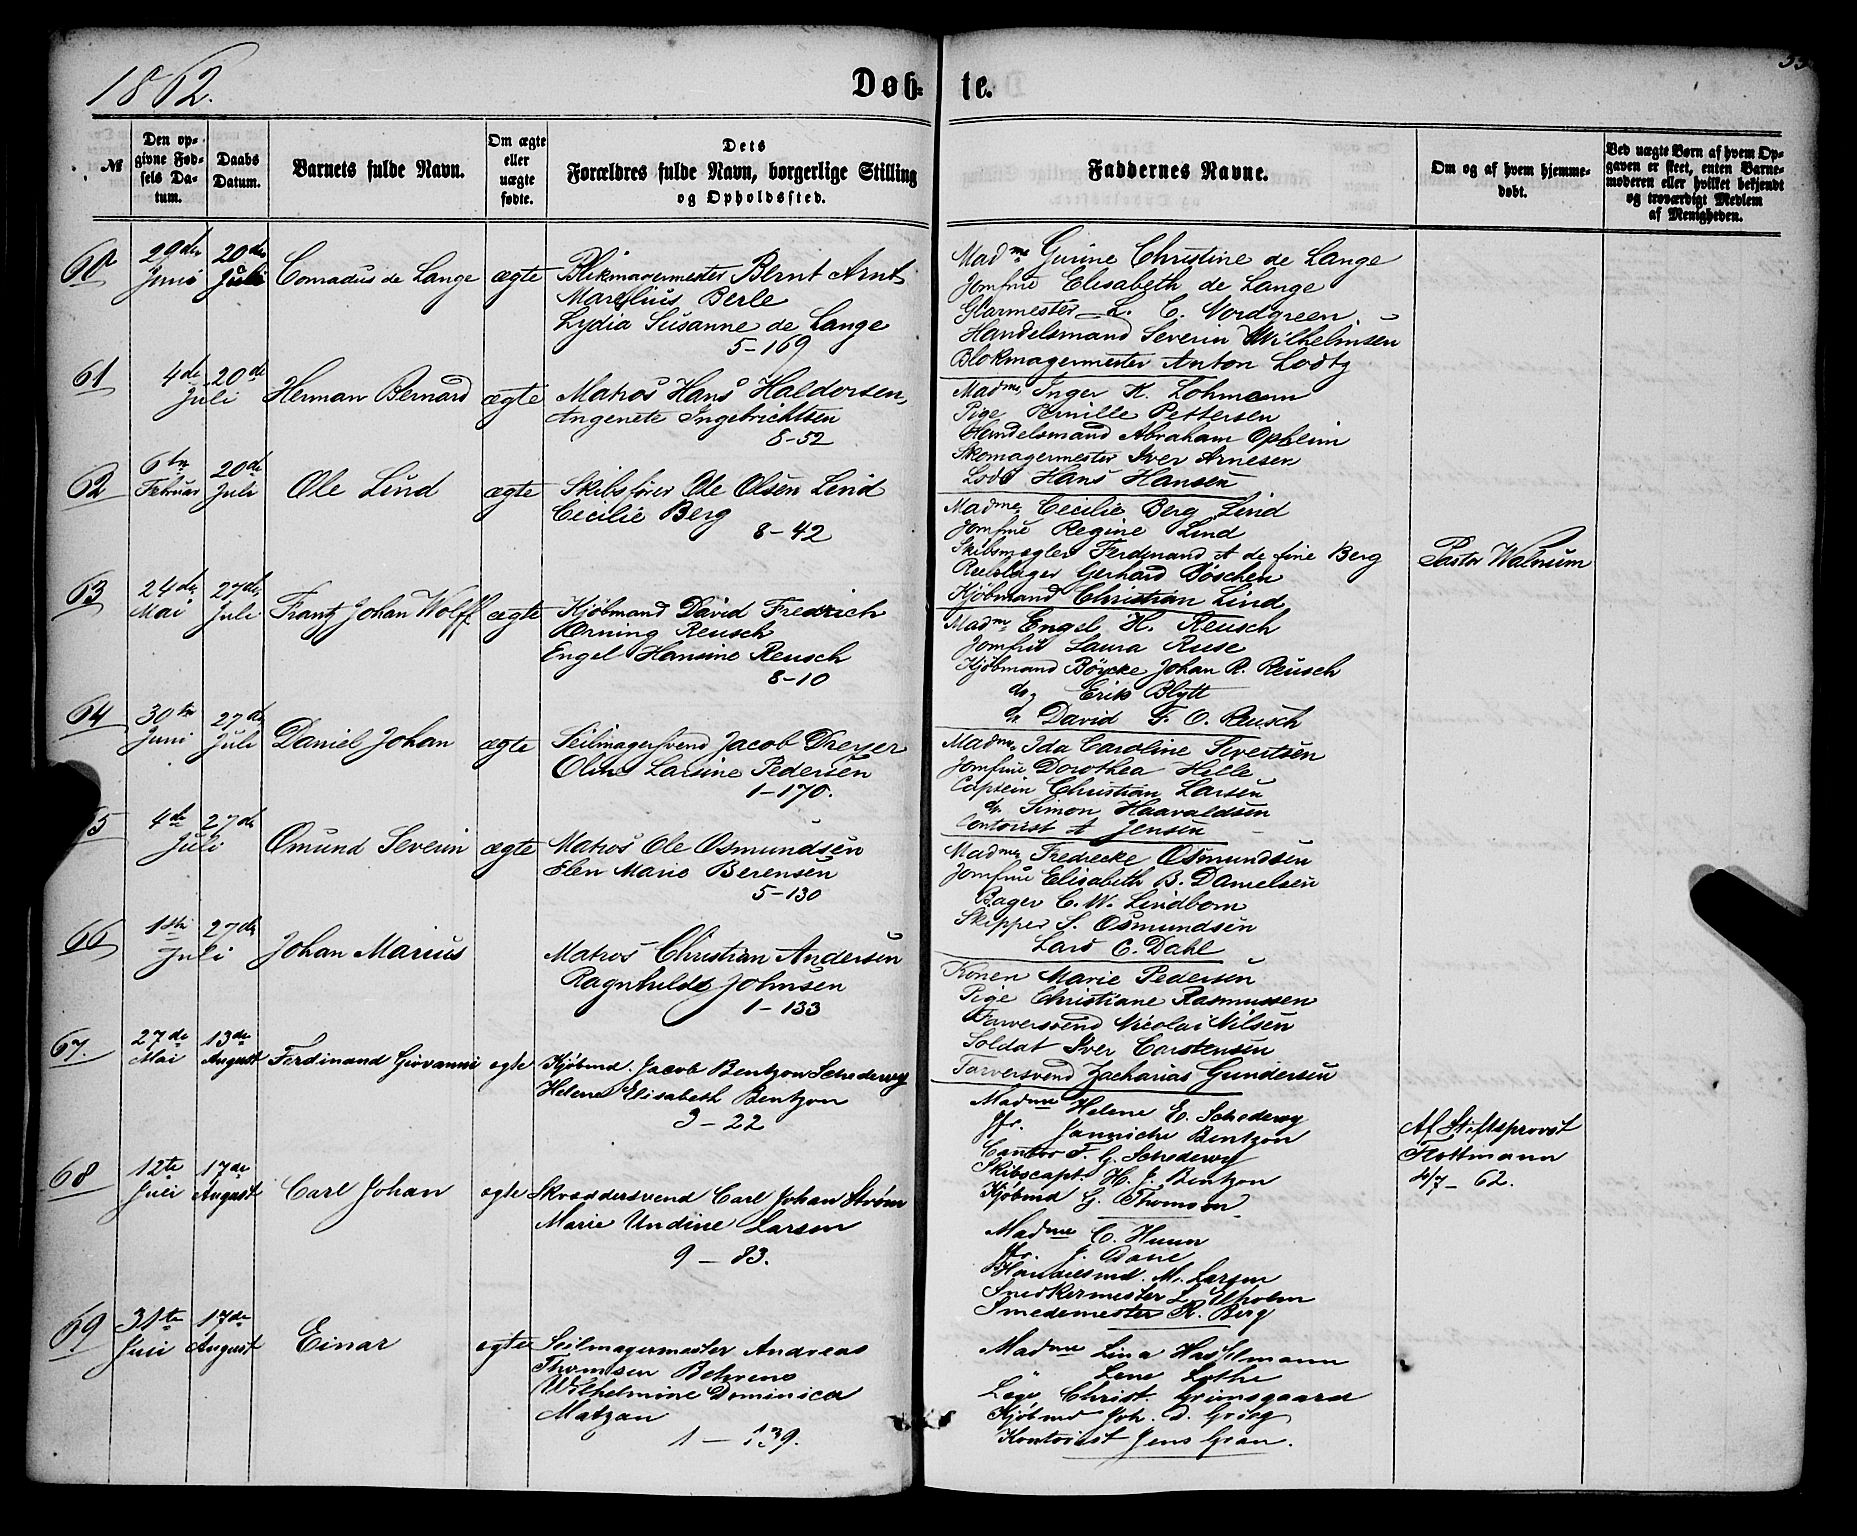 1862.
Døb-te.
№
Den op-
givne Fød-
sels Da-
tum.
Daabs
Datum.
Barnets fulde Navn.
Om ægte
eller
uægte
fødte.
Dets
Forældres fulde Navn, borgerlige Stilling
og Opholdssted.
Faddernes Navne.
Om og af hvem hjemme-
døbt.
Ved uægte Børn af hvem Op-
gaven er skeet, enten Barne-
moderen eller hvilket bekjendt
og troværdigt Medlem
af Menigheden.
60
29de
Juni
20de
Juli
Conradus de Lange
ægte
Blikmagermester Bernt Arnt
Marcelius Berle
Lydia Susanne de Lange
5-169
Madme Gurine Christine de Lange
Jomfrue Elisabeth de Lange
Glarmester L. C. Nordgreen
Handelsmand Severin Wilhelmsen
Blokmagermester Anton Lodtz
61
4de
Juli
20de
Herman Bernard
ægte
Matros Hans Haldorsen,
Angenete Ingebrichtsen
8-52
Madme Inger K. Lohmann
Pige Pernille Pettersen
Handelsmand Abraham Opheim
Skomagermester Iver Arnesen
Lods Hans Hansen
62
6te
Februar
20de
Juli
Ole Lind
ægte
Skibsfører Ole Olsen Lind
Cecilie Berg
8-42
Madme Cecilie Berg Lind
Jomfrue Regine Lind
Skibsmægler Ferdinand A de fine Berg
Reebslager Gerhard Døschen
Kjøbmand Christian Lind
Pastor Walnum
63
24de
Mai
27de
Juli
Frantz Johan Wolff
ægte
Kjøbmand David Fredrich
Ørning Reusch
Engel Hansine Reusch
8-10
Madme Engel H. Reusch
Jomfrue Laura Ruse
Kjøbmand Böycke Johan R. Reusch
do Erik Blytt
do David F. O. Reusch
64
30te
Juni
27de
Juli
Daniel Johan
ægte
Seilmagersvend Jacob Dreyer
Oline Larsine Pedersen
1-170.
Madme Ida Caroline Sivertsen
Jomfrue Dorothea Helle
Captein Christian Larsen
do. Simon Haavaldsen
Contorist A Jensen
65
4de
Juli
27de
Omund Severin
ægte
Matros Ole Osmundsen
Elen Marie Berensen
5-130
Madme Fredrecke Osmundsen
Jomfrue Elisabeth B. Danielsen
Bager C. W. Lindbom
Skipper S. Osmundsen
Lars C. Dahl
66
1ste
Juli
27de
Johan Marius
Matros Christian Andersen
Ragnhilde Johnsen
1-133
Konen Marie Pedersen
Pige Christiane Rasmussen
Farversvend Nicolai Nilsen
Soldat Iver Carstensen
Farversvend Zacharias Gundersen
67.
27de
Mai
13de
August
Ferdinand Giovanni
egte
Kjøbmd. Jacob Bentzon Schedewy
Helene Elisabeth Bentzon
3-22
Madme Helene E. Schedewy
Jfr. Jannicke Bentzon
Cantor F. G. Schedewy
Skibscapt. H. J. Bentzon
Kjøbmd G. Thomson
Af Stiftsprovst
Kottmann
4/7-62.
68
12te
Juli
17de
August
Carl Johan
egte
Skræddersvend Carl Johan Strøm
Marie Undine Larsen
9-83.
Madme C. Huun
Jfr. J. Dane
Handelsmd. M. Larsen
Snedkermester L. Elholm
Smedemester R. Berg
69
31te
Juli
17de
August
Einar
egte
Seilmagermester Andreas
Thomsen Behrens
Wilhelmine Dominica
Matzau
1-139.
Madme Lina Hasselmann
" Lene Lothe
Læge Christ. Grimsgaard
Kjøbmd Joh. D. Grieg
Kontorist Jens Gran.